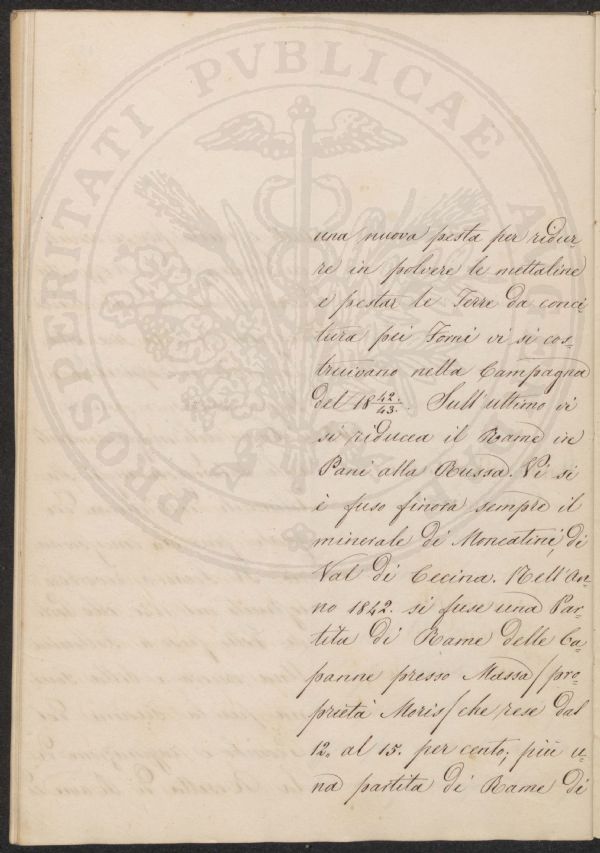 PROSPERITATI PVBLICAE A
una nuova pesta per ridur-
re in polvere le mettaline
e pestar le Terre da conci-
tura pei Forni vi si cos-
truivano nella Campagna
del 18 42/43. Sull'ultimo vi
si riducea il Rame in
Pani alla Russa. Vi si
è fuso finora sempre il
minerale di Moncatini, di
Val di Cecina. Nell'An-
no 1842. si fuse una Par-
tita di Rame delle Ca-
panne presso Massa / pro-
prietà Moris / che rese dal
12. al 15. per cento; più u-
na partita di Rame di